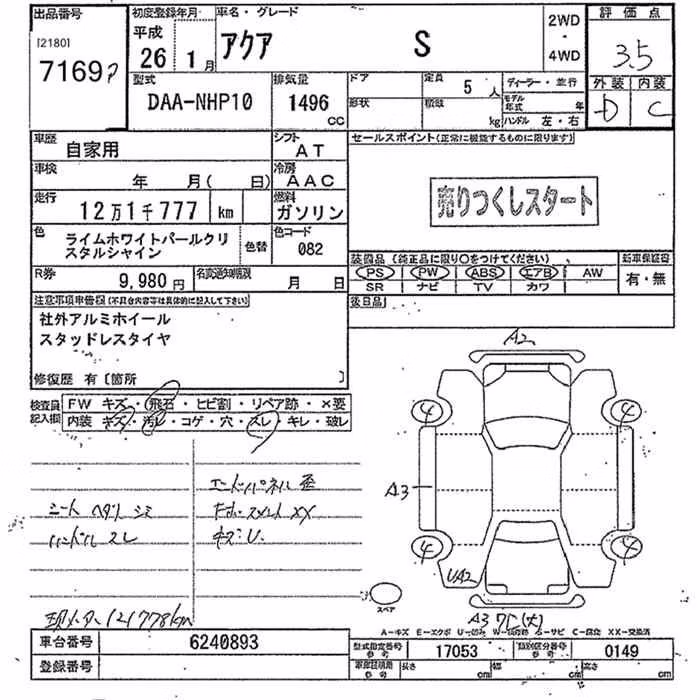 出品番号 初度登録年月 車名・グレード 2WD・4WD 評価点
[2180] 平成 アクア S 3.5
7169 26年 1月
型式 排気量 ドア 定員 5人 ディーラー・並行 外装 内装
DAA-NHP10 1496 CC 形状 積載 kg モデル年式 年 D C
ハンドル 左・右
車歴 自家用 シフト AT セールスポイント(正常に機能するものに限ります)
車検 年 月( 日) 冷房 AAC
走行 12万1千777 km 燃料 ガソリン 売りつくしスタート
色 ライムホワイトパールクリスタルシャイン 色替 色コード 082
装備品(純正品に限り○をつけてください) 新車保証書
PS PW ABS エアB AW 有・無
SR ナビ TV カワ
R券 9,980円 名変通知期限 月 日
後日品
注意事項申告欄(不具合内容等は具体的に記入して下さい)
社外アルミホイール
スタッドレスタイヤ
修復歴 有〔箇所 〕
検査員記入欄 FW キズ・飛石・ヒビ割・リペア跡・×要
内装 キズ・汚レ・コゲ・穴・スレ・キレ・破レ
A2
4 4
A3
4 4
UA2
スペア
A3
シート ヘタリ シミ
ハンドル スレ
エンドパネル 歪
XX
キズ U
現メーター121778km
A-キズ E-エクボ U-凹み W-補修跡 S-サビ C-腐食 XX-交換済
車台番号 6240893 型式指定番号 17053 類別区分番号 0149
登録番号 長さ cm 幅 cm 高さ cm